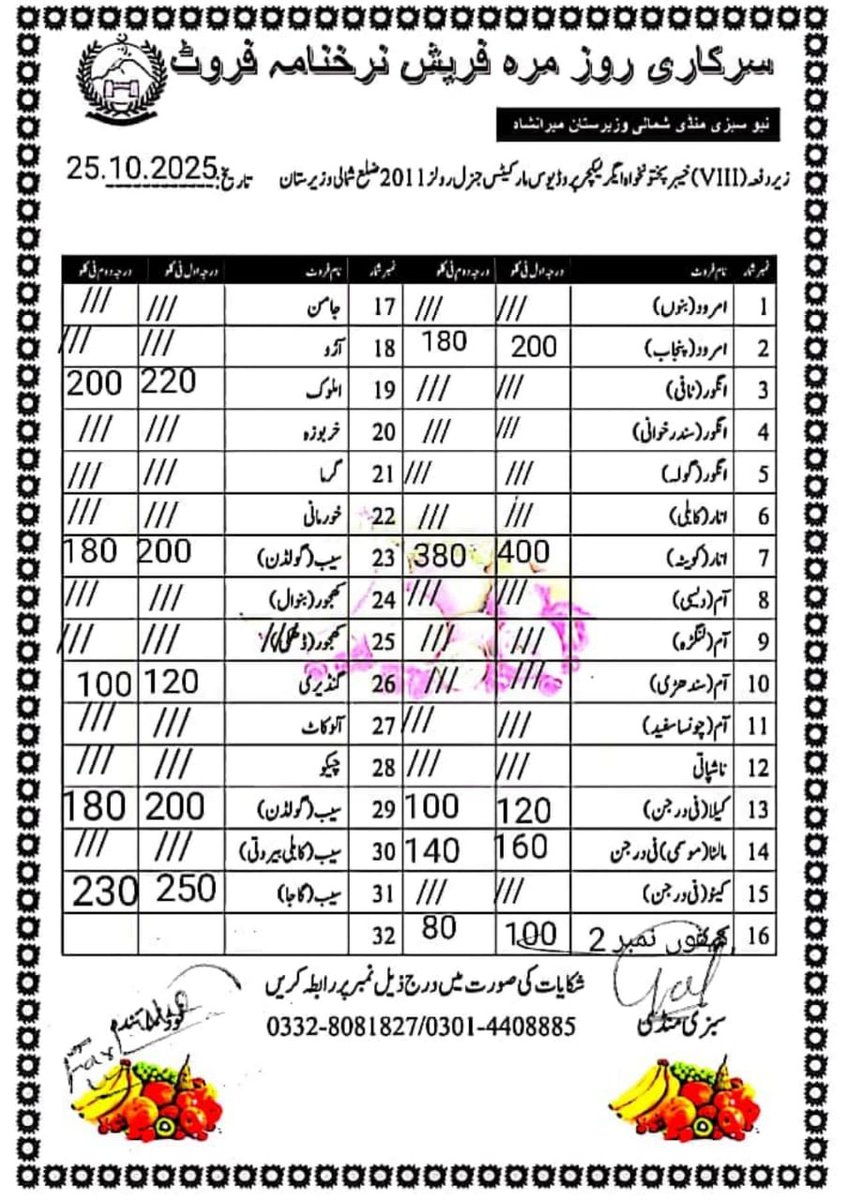 سرکاری روز مرہ فریش نرخنامہ فروٹ
نیو سبزی منڈی شمالی وزیرستان میرانشاہ
زیر دفعہ (VIII) خیبر پختونخواہ ایگریکلچر پروڈیوس مارکیٹس جنرل رولز 2011 ضلع شمالی وزیرستان تاریخ: 25.10.2025
نمبر شمار نام فروٹ درجہ اول فی کلو درجہ دوم فی کلو نمبر شمار نام فروٹ درجہ اول فی کلو درجہ دوم فی کلو
1 امرود (بنوں) /// /// 17 جامن /// ///
2 امرود (پنجاب) 200 180 18 آڑو /// ///
3 انگور (ٹافی) /// /// 19 املوک 220 200
4 انگور (سندرخوانی) /// /// 20 خربوزہ /// ///
5 انگور (گولہ) /// /// 21 گرما /// ///
6 انار (کابلی) /// /// 22 خورمانی /// ///
7 انار (کویٹہ) 400 380 23 سیب (گولڈن) 200 180
8 آم (دیسی) /// /// 24 کھجور (بنوال) /// ///
9 آم (لنگڑہ) /// /// 25 کھجور (ڈھکی) // /// ///
10 آم (سندھڑی) /// /// 26 گنڈیری 120 100
11 آم (چونسا سفید) /// /// 27 آلوکاٹ /// ///
12 ناشپاتی /// /// 28 چیکو /// ///
13 کیلا (فی درجن) 120 100 29 سیب (گولڈن) 200 180
14 مالٹا (موسمی) فی درجن 160 140 30 سیب (کابلی بیروتی) /// ///
15 کینو (فی درجن) /// /// 31 سیب (گاجا) 250 230
16 نمبر 2 100 80 32
شکایات کی صورت میں درج ذیل نمبر پر رابطہ کریں
سبزی منڈی 0332-8081827/0301-4408885